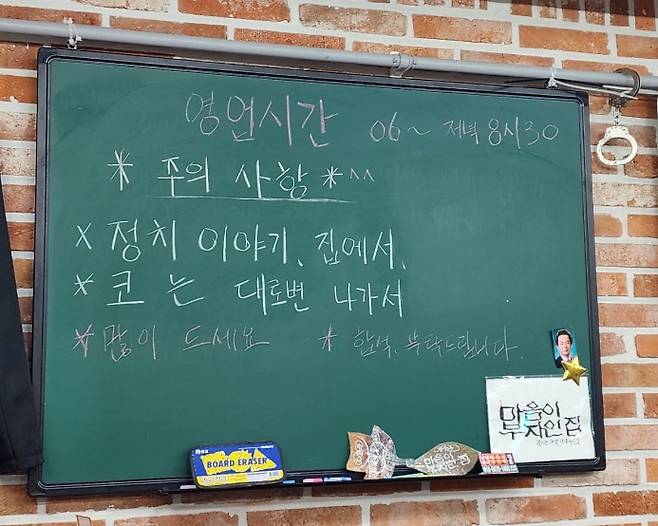 영업시간 06~ 저녁 8시30
* 주의 사항 *^^
x 정치 이야기. 집에서.
* 코 는 대로변 나가서
* 많이 드세요 * 합석. 부탁드립니다.
마음이
부자인 집
BOARD ERASER